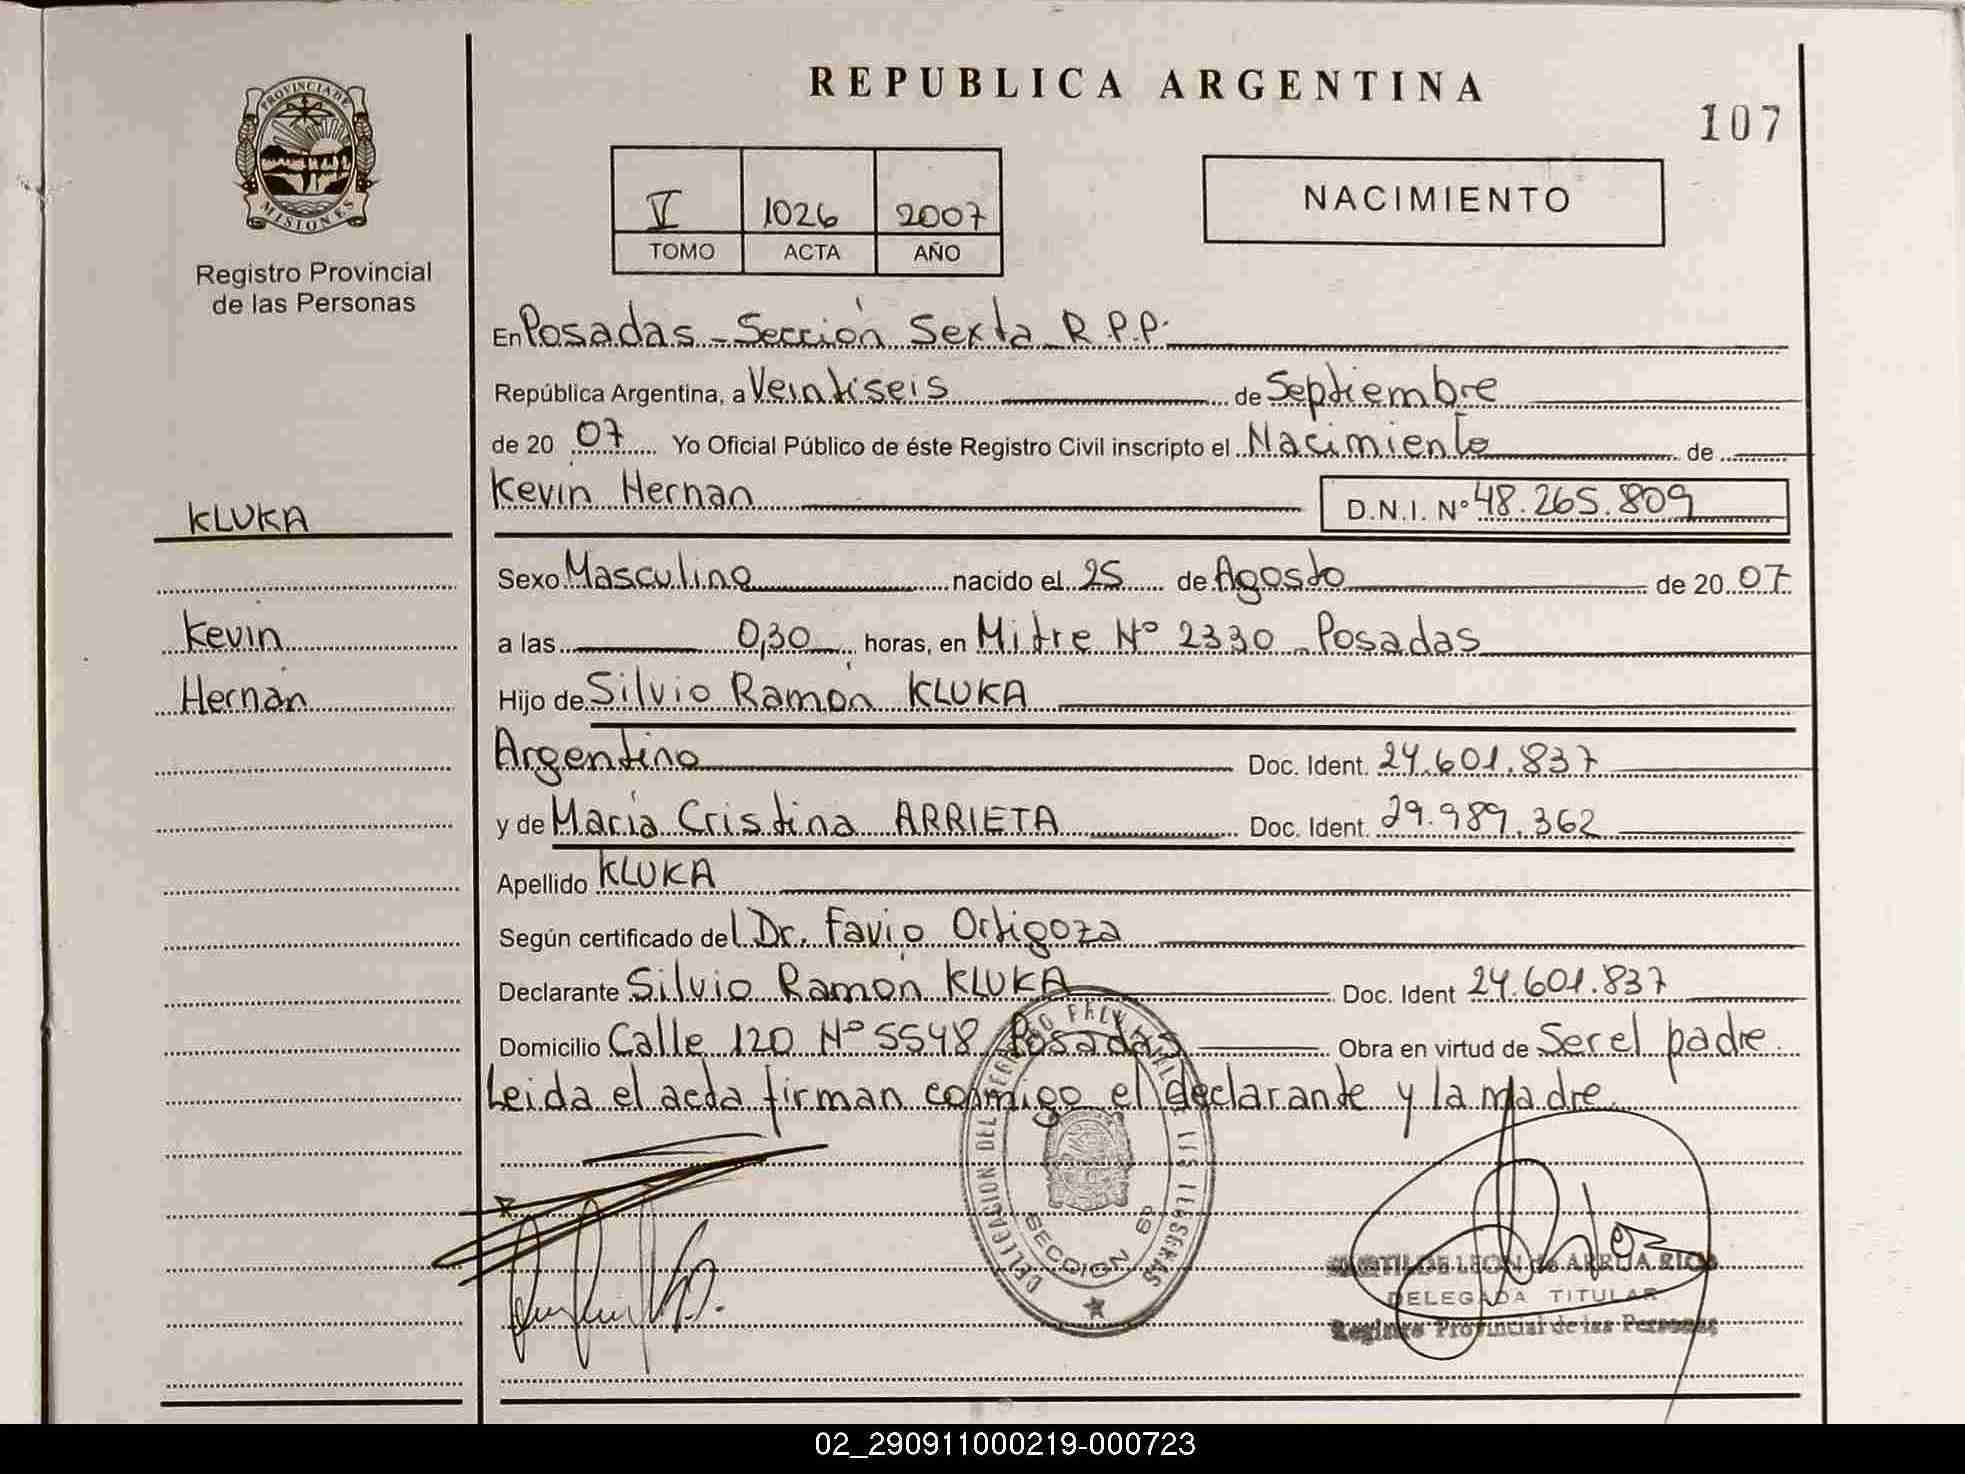 PROVINCIA DE
MISIONES
Registro Provincial
de las Personas
KLUKA
Kevin
Hernán
REPUBLICA ARGENTINA
107
V 1026 2007
TOMO ACTA AÑO
NACIMIENTO
En Posadas - Sección Sexta R.P.P.
República Argentina, a Veintiseis de Septiembre
de 20 07 Yo Oficial Público de éste Registro Civil inscripto el Nacimiento de
Kevin Hernan D.N.I. N° 48.265.809
Sexo Masculino nacido el 25 de Agosto de 20 07
a las 0,30 horas, en Mitre N° 2330 - Posadas
Hijo de Silvio Ramón KLUKA
Argentino Doc. Ident. 24.601.837
y de María Cristina ARRIETA Doc. Ident. 29.989.362
Apellido KLUKA
Según certificado del Dr. Favio Ortigoza
Declarante Silvio Ramón KLUKA Doc. Ident 24.601.837
Domicilio Calle 120 N° 5548 Posadas Obra en virtud de Ser el padre
Leida el acta firman conmigo el declarante y la madre
SECCION 6ª
DE LEON de ARRUA RIOS
DELEGADA TITULAR
Registro Provincial de las Personas
02_290911000219-000723